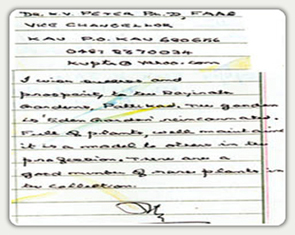 DR. K.V. PETER Ph.D, FAAE
VICE CHANCELLOR
KAU P.O. KAU 680656
0487 2370034
kvptr@yahoo.com
I wish success and
prosperity to the
Gardens, The garden
is 'Eden Garden' reincarnated.
Full of plants, well maintained
it is a model to others in the
profession. There are a
good number of rare plants in
the collection.